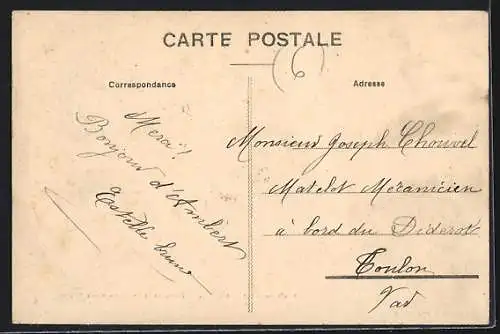 CARTE POSTALE
(6)
Correspondance
Merci!
Bonjour d'Ambert
Estelle
Adresse
Monsieur Joseph Chouvel
Matelot Mécanicien
à bord du Diderot
Toulon
Var